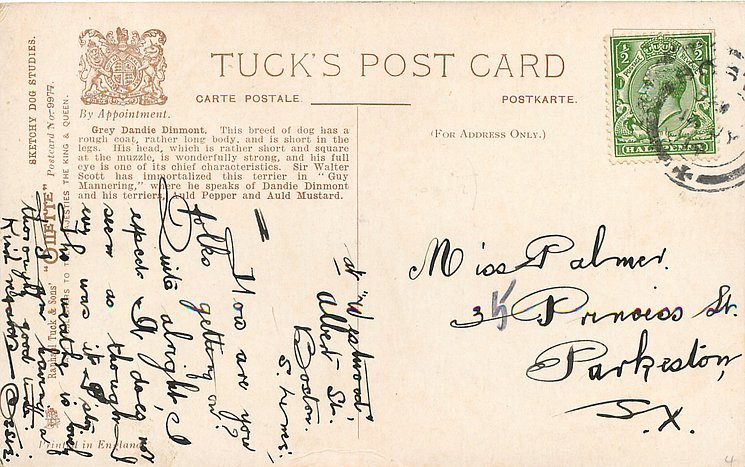 TUCK'S POST CARD
CARTE POSTALE.
POSTKARTE.
By Appointment.
(FOR ADDRESS ONLY.)
Grey Dandie Dinmont. This breed of dog has a
rough coat, rather long body, and is short in the
legs. His head, which is rather short and square
at the muzzle, is wonderfully strong, and his full
eye is one of its chief characteristics. Sir Walter
Scott has immortalized this terrier in "Guy
Mannering," where he speaks of Dandie Dinmont
and his terriers, Auld Pepper and Auld Mustard.
SKETCHY DOG STUDIES.
Raphael Tuck & Sons' "OILETTE" Postcard No. 9977.
TO THEIR MAJESTIES THE KING & QUEEN.
Printed in England
½ ½
HALFPENNY
at "Westwood"
Albert St.
Boston.
How are you
folks getting on?
Quite alright, I
expect. It does not
seem as though I
was
The weather is lovely
I am having a
thoroughly good
Kind regards
Miss Palmer.
35 Princess St.
Parkeston,
S.X.
4